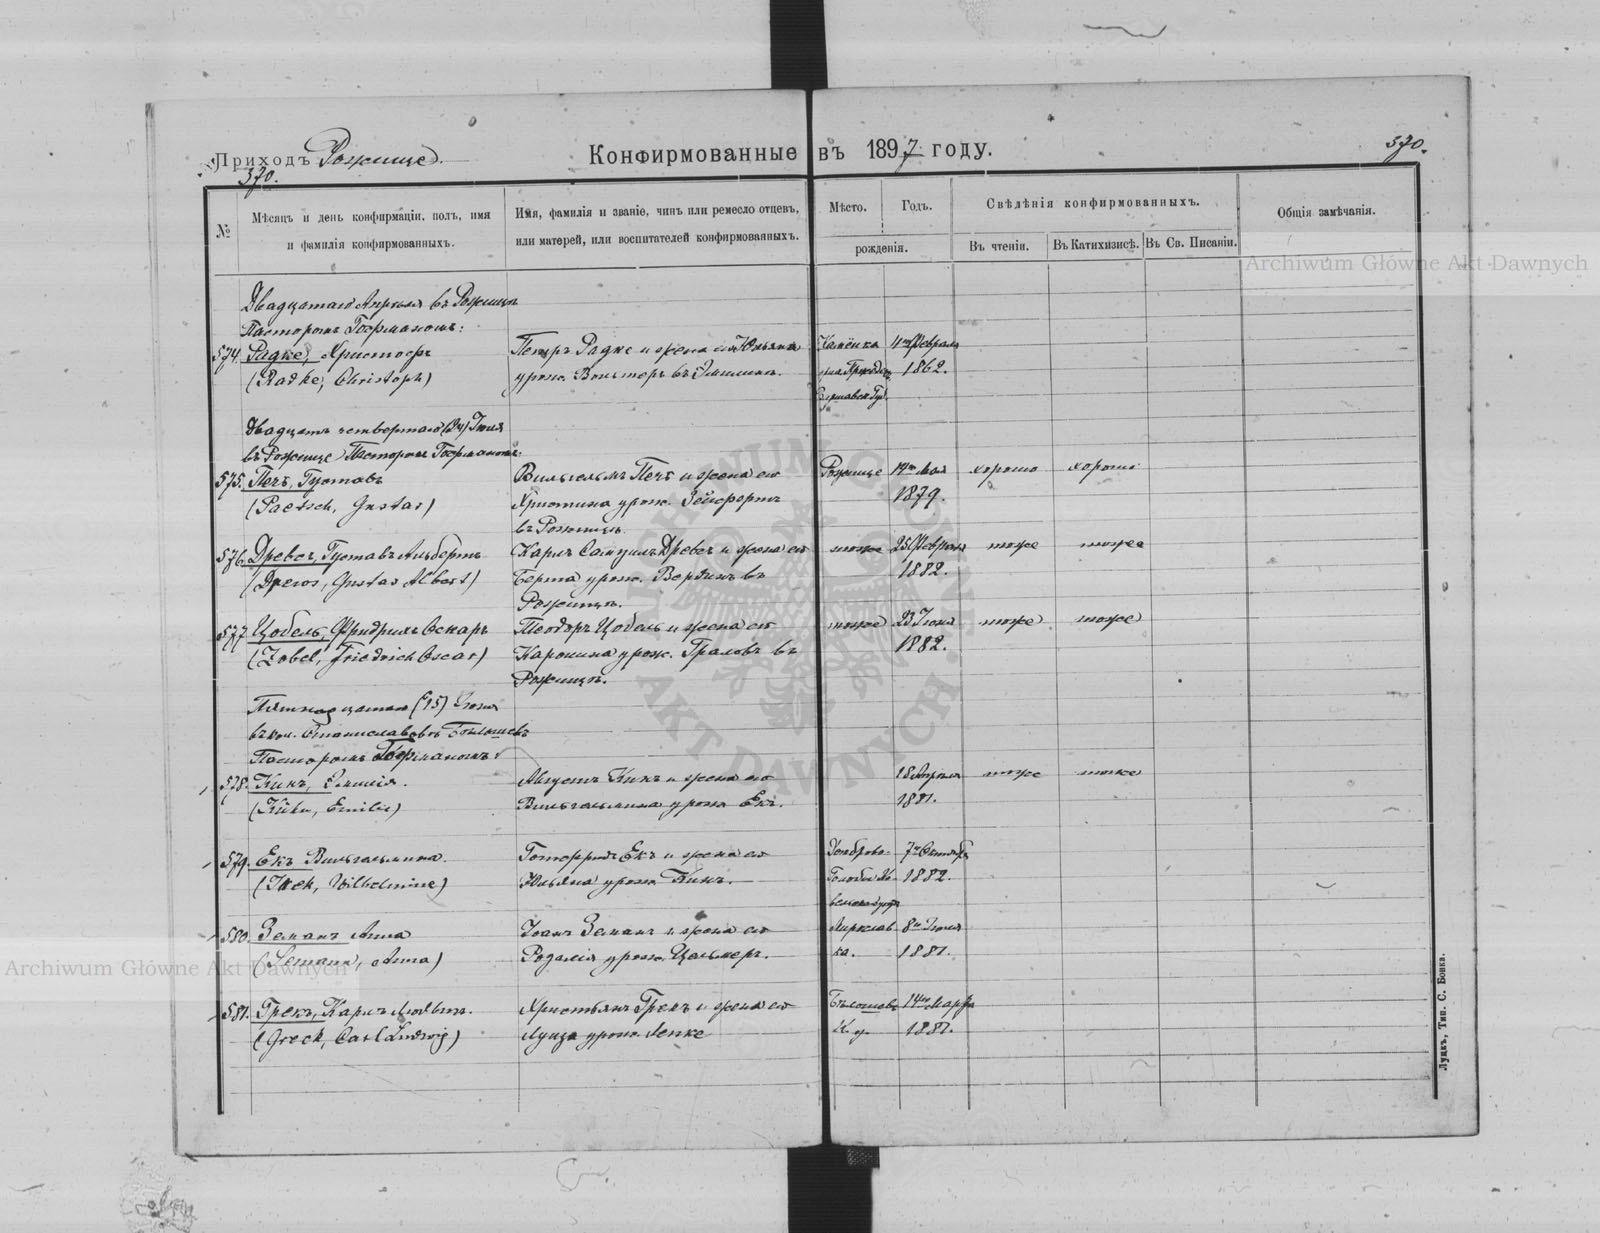 Приходъ Рожище.
Конфирмованные въ 1897 году.
370.
370.
№
Мѣсяцъ и день конфирмаціи, полъ, имя
и фамилія конфирмованныхъ.
Имя, фамилія и званіе, чинъ или ремесло отцевъ,
или матерей, или воспитателей конфирмованныхъ.
Мѣсто.
Годъ.
рожденія.
Свѣдѣнія конфирмованныхъ.
Въ чтеніи.
Въ Катихизисѣ.
Въ Св. Писаніи.
Общія замѣчанія.
Archiwum Główne Akt Dawnych
Двадцатаго Апрѣля въ Рожищѣ
Пасторомъ Гофманомъ:
574. Радке, Христофъ
(Radke, Christoph)
Петръ Радке и жена его Юльяна
урож. Вольтеръ въ Эмилин.
Каменка
1862.
Двадцать четвертаго (24) Іюня
въ Рожище Пасторомъ Гофманомъ:
575. Печъ, Густавъ
(Paetsch, Gustav)
Вильгельмъ Печъ и жена его
Христина урож. Зейфертъ
въ Рожищѣ.
Рожище
14го Мая
1879.
хорошо
хорошо
576. Древсъ, Густавъ Альбертъ
(Drews, Gustav Albert)
Карлъ Самуилъ Древсъ и жена его
Берта урож. въ
Рожищѣ.
тоже
25 Февраля
1882.
тоже
тоже
577. Цобель, Фридрихъ Оскаръ
(Zobel, Friedrich Oscar)
Теодоръ Цобель и жена его
Каролина урож. Граловъ въ
Рожищѣ.
тоже
23 Іюня
1882.
тоже
тоже
Пятнадцатаго (15) Іюня
въ кол. Станиславовъ
Пасторомъ Гофманомъ:
578. Кикъ, Эмилія.
Августъ Кикъ и жена его
Вильгельмина урож. Екъ.
18 Апрѣля
1881.
тоже
тоже
579. Екъ Вильгельмина.
(Jaek, Wilhelmine)
Готфридъ Екъ и жена его
Юльяна урож. Кикъ.
7го Октября
1882.
580. Земанъ Анна
(Semann, Anna)
Іоанъ Земанъ и жена его
Розалія урож. Цельмеръ.
Мирослав
ка.
8го Іюля
1881.
581. Грекъ, Карлъ Людвигъ.
(Greck, Carl Ludwig)
Христьянъ Грекъ и жена его
Луиза урож. Лепке
14го Марта
1881.
Archiwum Główne Akt Dawnych
ARCHIWUM GŁÓWNE
AKT DAWNYCH
Луцкъ, Тип. С. Бонка.